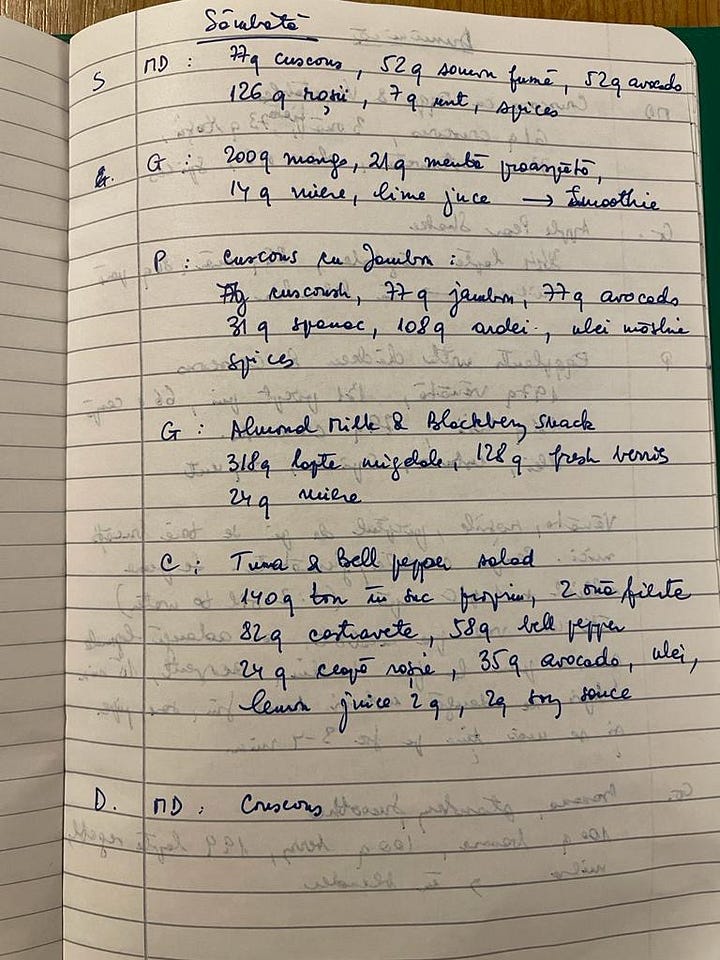 Sâmbătă
S MD : 77g cuscous, 52g somon fumé, 52g avocado
126 g roșii, 7g unt, spices
G : 200g mango, 21g mentă proaspătă,
14 g miere, lime juce → Smoothie
P : Cuscous cu Jambon :
77g cuscoush, 77g jambon, 77g avocado
31 g spanac, 108g ardei, ulei măsline
spices
G : Almond Milk & Blackberry snack
318g lapte migdale, 128g fresh berries
24g miere
C : Tuna & Bell pepper salad
140g ton în suc propriu, 2 ouă fierte
82g castravete, 58g bell pepper
24 g ceapă roșie, 35g avocado, ulei,
lemon juice 2 g, 2g soy sauce
D. MD : Couscous